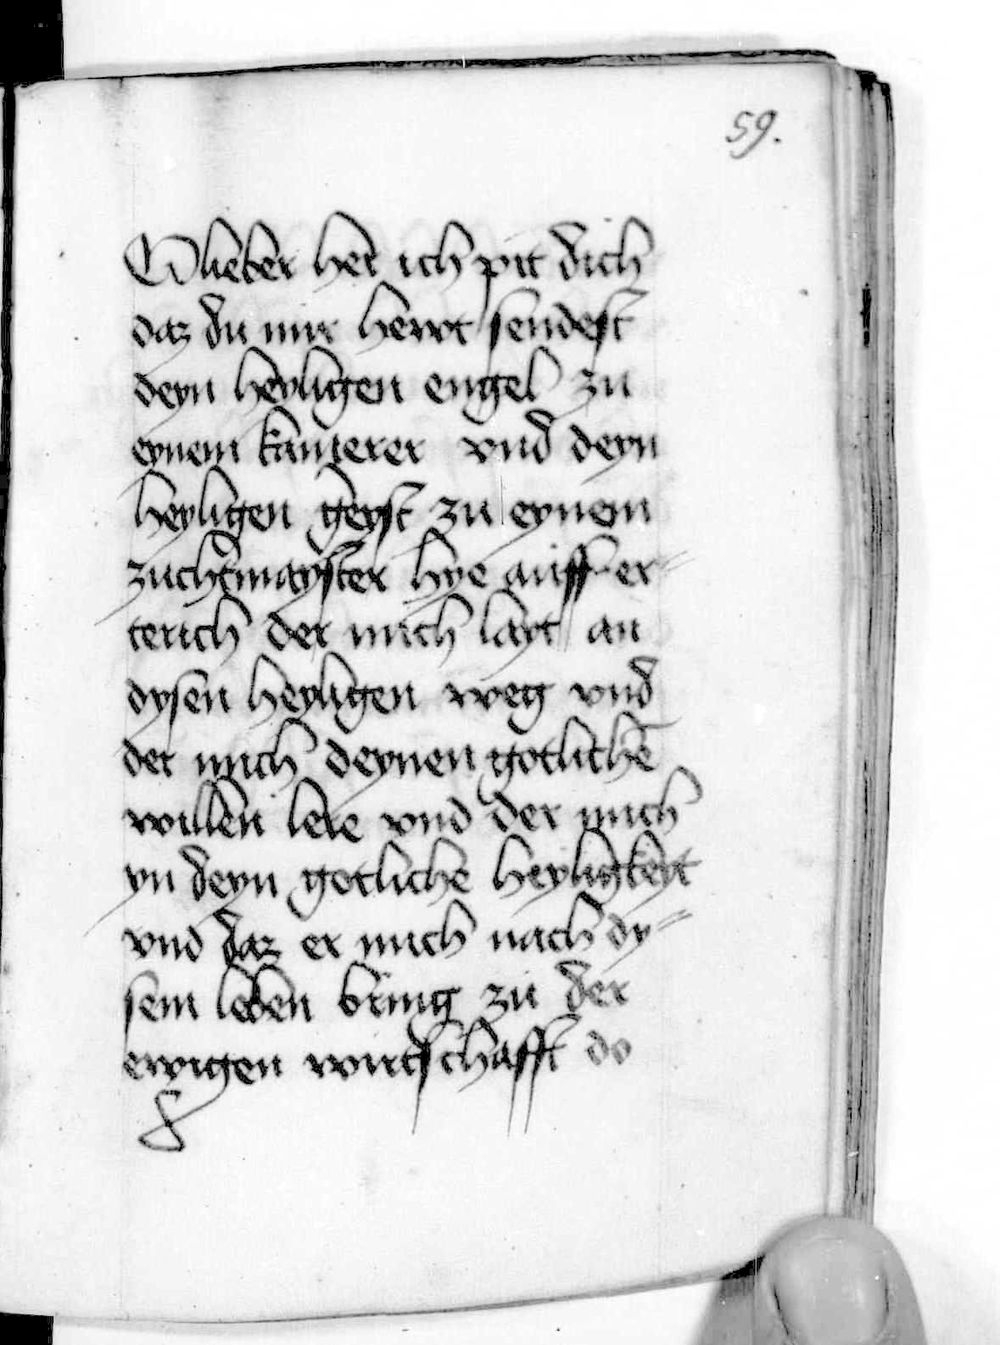 59.
O lieber her ich pit dich
daz du mir hewt sendest
deyn heyligen engel zu
eynem kamerer vnd deyn
heyligen geyst zu eynem
zuchtmayster hye auff er=
terich der mich layt an
dysen heyligen weg vnd
der mich deynen gotlichē
willen lere vnd der mich
yn deyn gotliche heyligkeyt
vnd daz er mich nach dy=
sem leben bring zu der
ewigen wirtschafft do